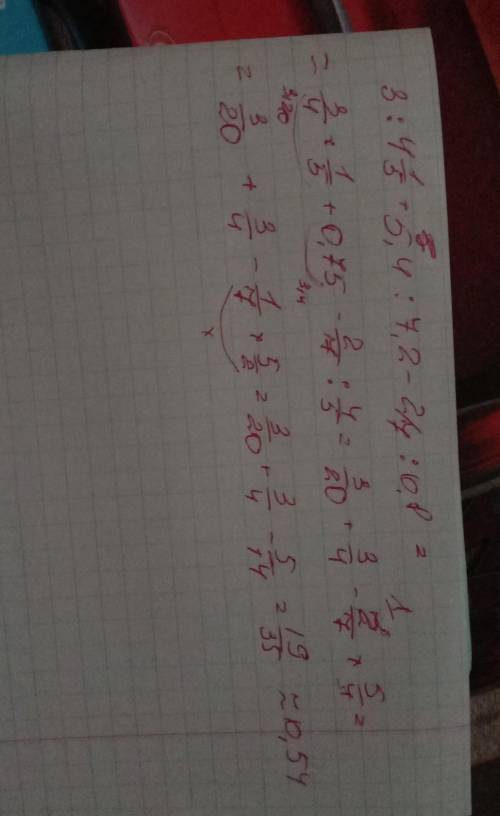 3 : 4 1/5 + 5,4 : 7,2 - 2/7 : 0,8 =
= 3/4 × 1/5 + 0,75 - 2/7 : 4/5 = 3/20 + 3/4 - 2/7 × 5/4 =
3/20 3/4 1
= 3/20 + 3/4 - 1/7 × 5/2 = 3/20 + 3/4 - 5/14 = 19/35 ≈ 0,54
×